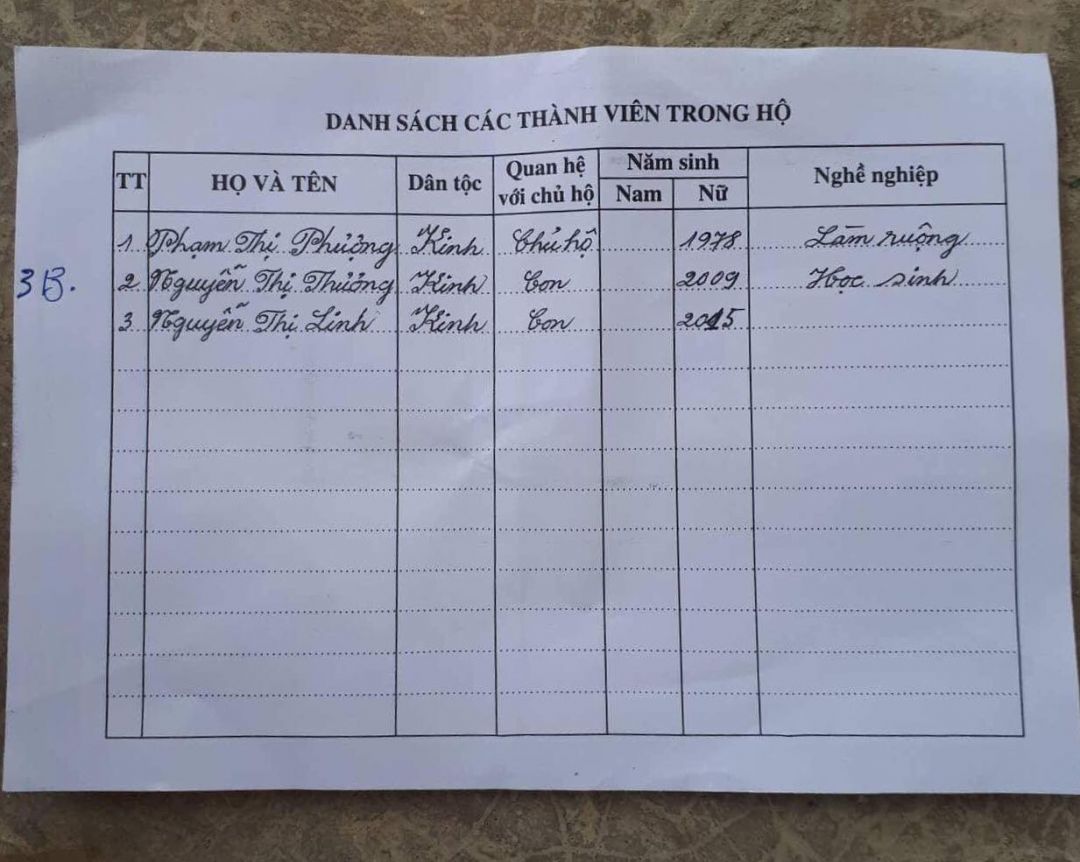 DANH SÁCH CÁC THÀNH VIÊN TRONG HỘ
TT HỌ VÀ TÊN Dân tộc Quan hệ với chủ hộ Năm sinh Nghề nghiệp
Nam Nữ
1 Phạm Thị Phưởng Kinh Chủ hộ 1978 Làm ruộng
3B. 2 Nguyễn Thị Thưởng Kinh Con 2009 Học sinh
3 Nguyễn Thị Linh Kinh Con 2015